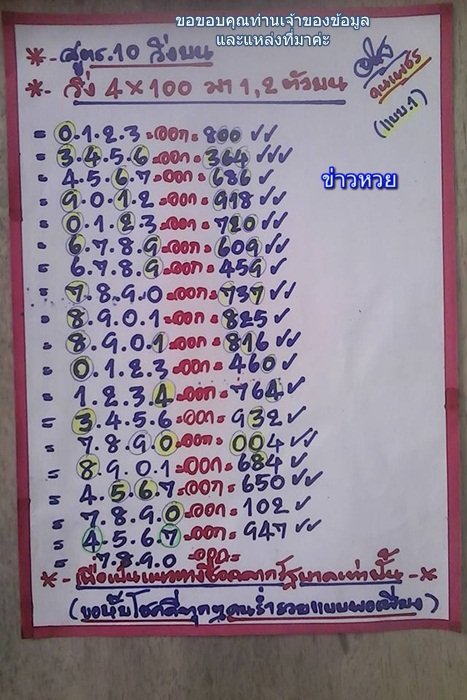 ขอขอบคุณท่านเจ้าของข้อมูล
และแหล่งที่มาค่ะ
*- สูตร.10 วิ่งบน
*- วิ่ง 4×100 มา 1,2 ตัวบน
(แบบ.1)
ข่าวหวย
= 0.1.2.3 =ออก= 800 ✓✓
= 3.4.5.6 =ออก= 364 ✓✓✓
= 4.5.6.7 =ออก= 686 ✓
= 9.0.1.2 =ออก= 918 ✓✓
= 0.1.2.3 =ออก= 720 ✓✓
= 6.7.8.9 =ออก= 609 ✓✓
= 6.7.8.9 =ออก= 459 ✓
= 7.8.9.0 =ออก= 737 ✓✓
= 8.9.0.1 =ออก= 825 ✓
= 8.9.0.1 =ออก= 816 ✓✓
= 0.1.2.3 =ออก= 460 ✓
= 1.2.3.4 =ออก= 764 ✓
= 3.4.5.6 =ออก= 932 ✓
= 7.8.9.0 =ออก= 004 ✓✓
= 8.9.0.1 =ออก= 684 ✓
= 4.5.6.7 =ออก= 650 ✓✓
= 7.8.9.0 =ออก= 102 ✓
= 4.5.6.7 =ออก= 947 ✓✓
= 7.8.9.0 =ออก=
*- เพื่อเป็นแนวทางซื้อสลากรัฐบาลเท่านั้น -*
(ขอให้โชคดีทุกๆคนร่ำรวยแบบพอเพียง)